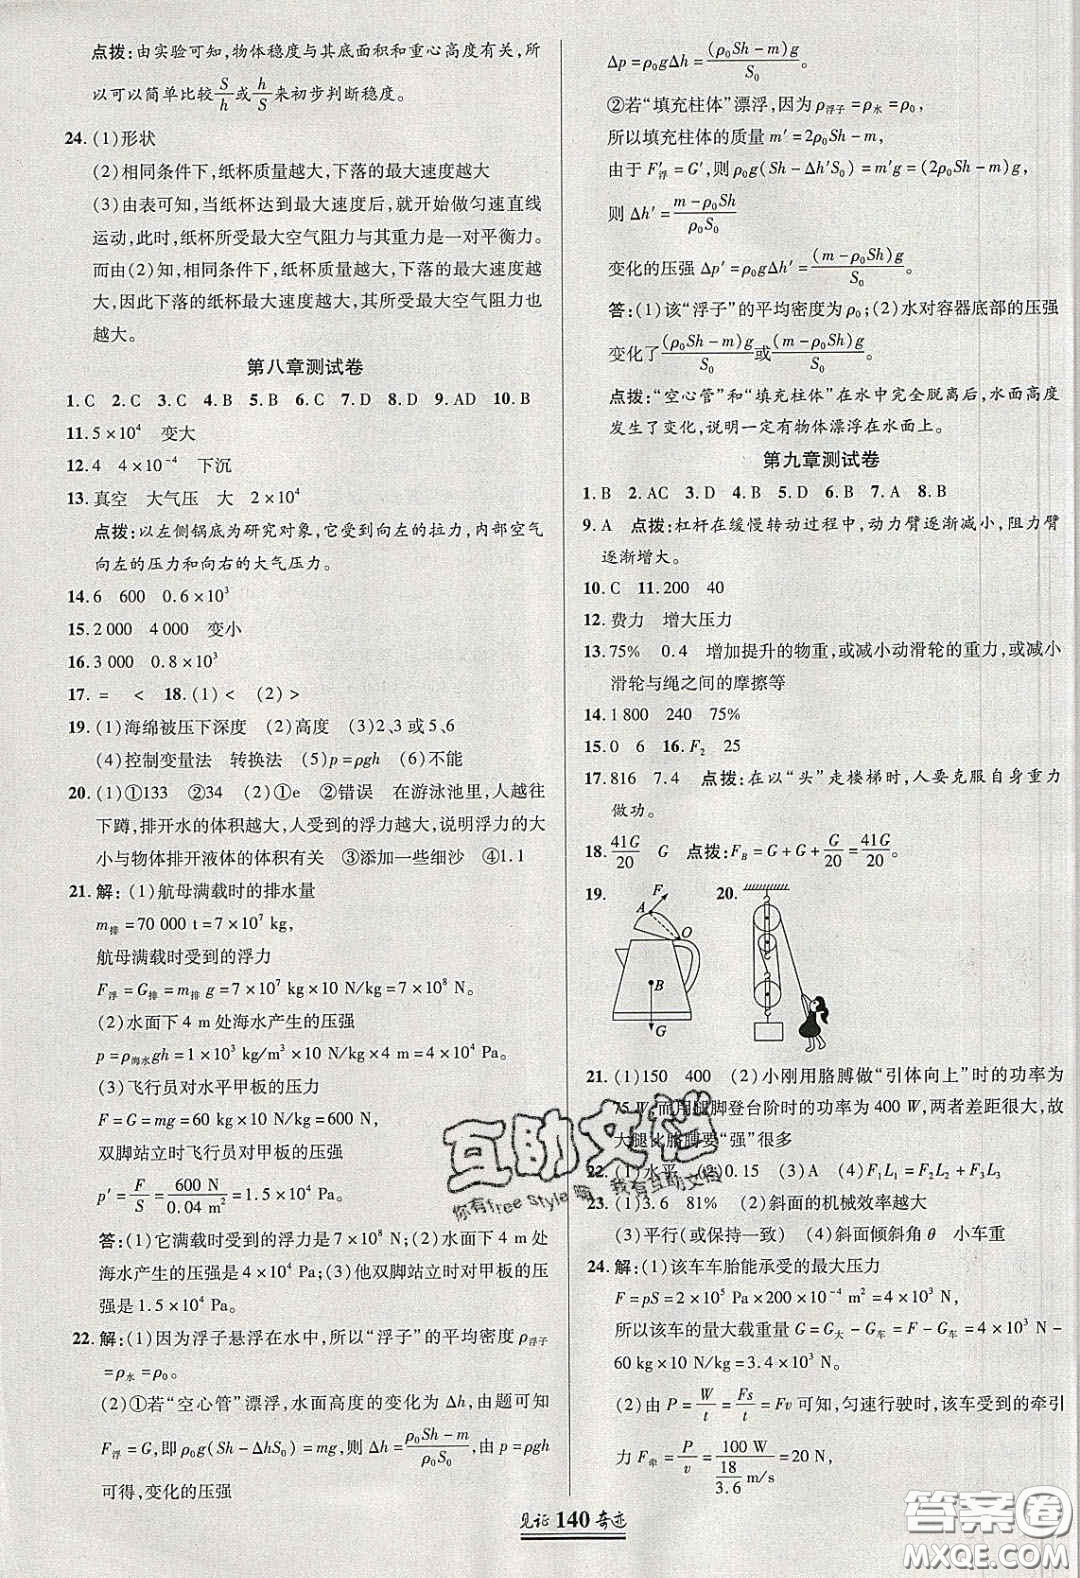 点拨:由实验可知,物体稳度与其底面积和重心高度有关,所
以可以简单比较S/h或h/S来初步判断稳度。
24.(1)形状
(2)相同条件下,纸杯质量越大,下落的最大速度越大
(3)由表可知,当纸杯达到最大速度后,就开始做匀速直线
运动,此时,纸杯所受最大空气阻力与其重力是一对平衡力。
而由(2)知,相同条件下,纸杯质量越大,下落的最大速度越
大,因此下落的纸杯最大速度越大,其所受最大空气阻力也
越大。
第八章测试卷
1.C 2.C 3.C 4.B 5.B 6.C 7.D 8.D 9.AD 10.B
11.5×10⁴ 变大
12.4 4×10⁻⁴ 下沉
13.真空 大气压 大 2×10⁴
点拨:以左侧锅底为研究对象,它受到向左的拉力,内部空气
向左的压力和向右的大气压力。
14.6 600 0.6×10³
15.2 000 4 000 变小
16.3 000 0.8×10³
17.= < 18.(1)< (2)>
19.(1)海绵被压下深度 (2)高度 (3)2、3或5、6
(4)控制变量法 转换法 (5)p=ρgh (6)不能
20.(1)①133 ②34 (2)①e ②错误 在游泳池里,人越往
下蹲,排开水的体积越大,人受到的浮力越大,说明浮力的大
小与物体排开液体的体积有关 ③添加一些细沙 ④1.1
21.解:(1)航母满载时的排水量
m排=70 000 t=7×10⁷ kg,
航母满载时受到的浮力
F浮=G排=m排g=7×10⁷ kg×10 N/kg=7×10⁸ N.
(2)水面下4 m处海水产生的压强
p=ρ海水gh=1×10³ kg/m³×10 N/kg×4 m=4×10⁴ Pa.
(3)飞行员对水平甲板的压力
F=G=mg=60 kg×10 N/kg=600 N,
双脚站立时飞行员对甲板的压强
p'=F/S=600 N/0.04 m²=1.5×10⁴ Pa。
答:(1)它满载时受到的浮力是7×10⁸ N;(2)水面下4 m处
海水产生的压强是4×10⁴ Pa;(3)他双脚站立时对甲板的压
强是1.5×10⁴ Pa。
22.解:(1)因为浮子悬浮在水中,所以“浮子”的平均密度ρ浮子
=ρ水=ρ₀。
(2)①若“空心管”漂浮,水面高度的变化为Δh,由题可知
F浮=G,即ρ₀g(Sh-ΔhS₀)=mg,则Δh=(ρ₀Sh-m)/(ρ₀S₀),由p=ρgh
可得,变化的压强
Δp=ρ₀gΔh=(ρ₀Sh-m)g/S₀。
②若“填充柱体”漂浮,因为ρ浮子=ρ水=ρ₀,
所以填充柱体的质量m'=2ρ₀Sh-m,
由于F'浮=G',则ρ₀g(Sh-Δh'S₀)=m'g=(2ρ₀Sh-m)g,
则Δh'=(m-ρ₀Sh)/(ρ₀S₀)
变化的压强Δp'=ρ₀gΔh'=(m-ρ₀Sh)g/S₀。
答:(1)该“浮子”的平均密度为ρ₀;(2)水对容器底部的压强
变化了(ρ₀Sh-m)g/S₀或(m-ρ₀Sh)g/S₀。
点拨:“空心管”和“填充柱体”在水中完全脱离后,水面高度
发生了变化,说明一定有物体漂浮在水面上。
第九章测试卷
1.B 2.AC 3.D 4.B 5.D 6.B 7.A 8.B
9.A 点拨:杠杆在缓慢转动过程中,动力臂逐渐减小,阻力臂
逐渐增大。
10.C 11.200 40
12.费力 增大压力
13.75% 0.4 增加提升的物重,或减小动滑轮的重力,或减小
滑轮与绳之间的摩擦等
14.1 800 240 75%
15.0 6 16.F₂ 25
17.816 7.4 点拨:在以“头”走楼梯时,人要克服自身重力
做功。
18.41G/20 G 点拨:F_B=G+G+G/20=41G/20。
19. F A O B G 20.
21.(1)150 400 (2)小刚用胳膊做“引体向上”时的功率为
75 W,而用腿脚登台阶时的功率为400 W,两者差距很大,故
大腿比胳膊要“强”很多
22.(1)水平 (2)0.15 (3)A (4)F₁L₁=F₂L₂+F₃L₃
23.(1)3.6 81% (2)斜面的机械效率越大
(3)平行(或保持一致) (4)斜面倾斜角θ 小车重
24.解:(1)该车车胎能承受的最大压力
F=pS=2×10⁵ Pa×200×10⁻⁴ m²=4×10³ N,
所以该车的最大载重量G=G大-G车=F-G车=4×10³ N-
60 kg×10 N/kg=3.4×10³ N。
(2)由P=W/t=Fs/t=Fv可知,匀速行驶时,该车受到的牵引
力F牵=P/v=100 W/(18/3.6 m/s)=20 N,
见证140奇迹
互助文档
你有free style嘛,我有互助文档
答案圈
MXQE.COM